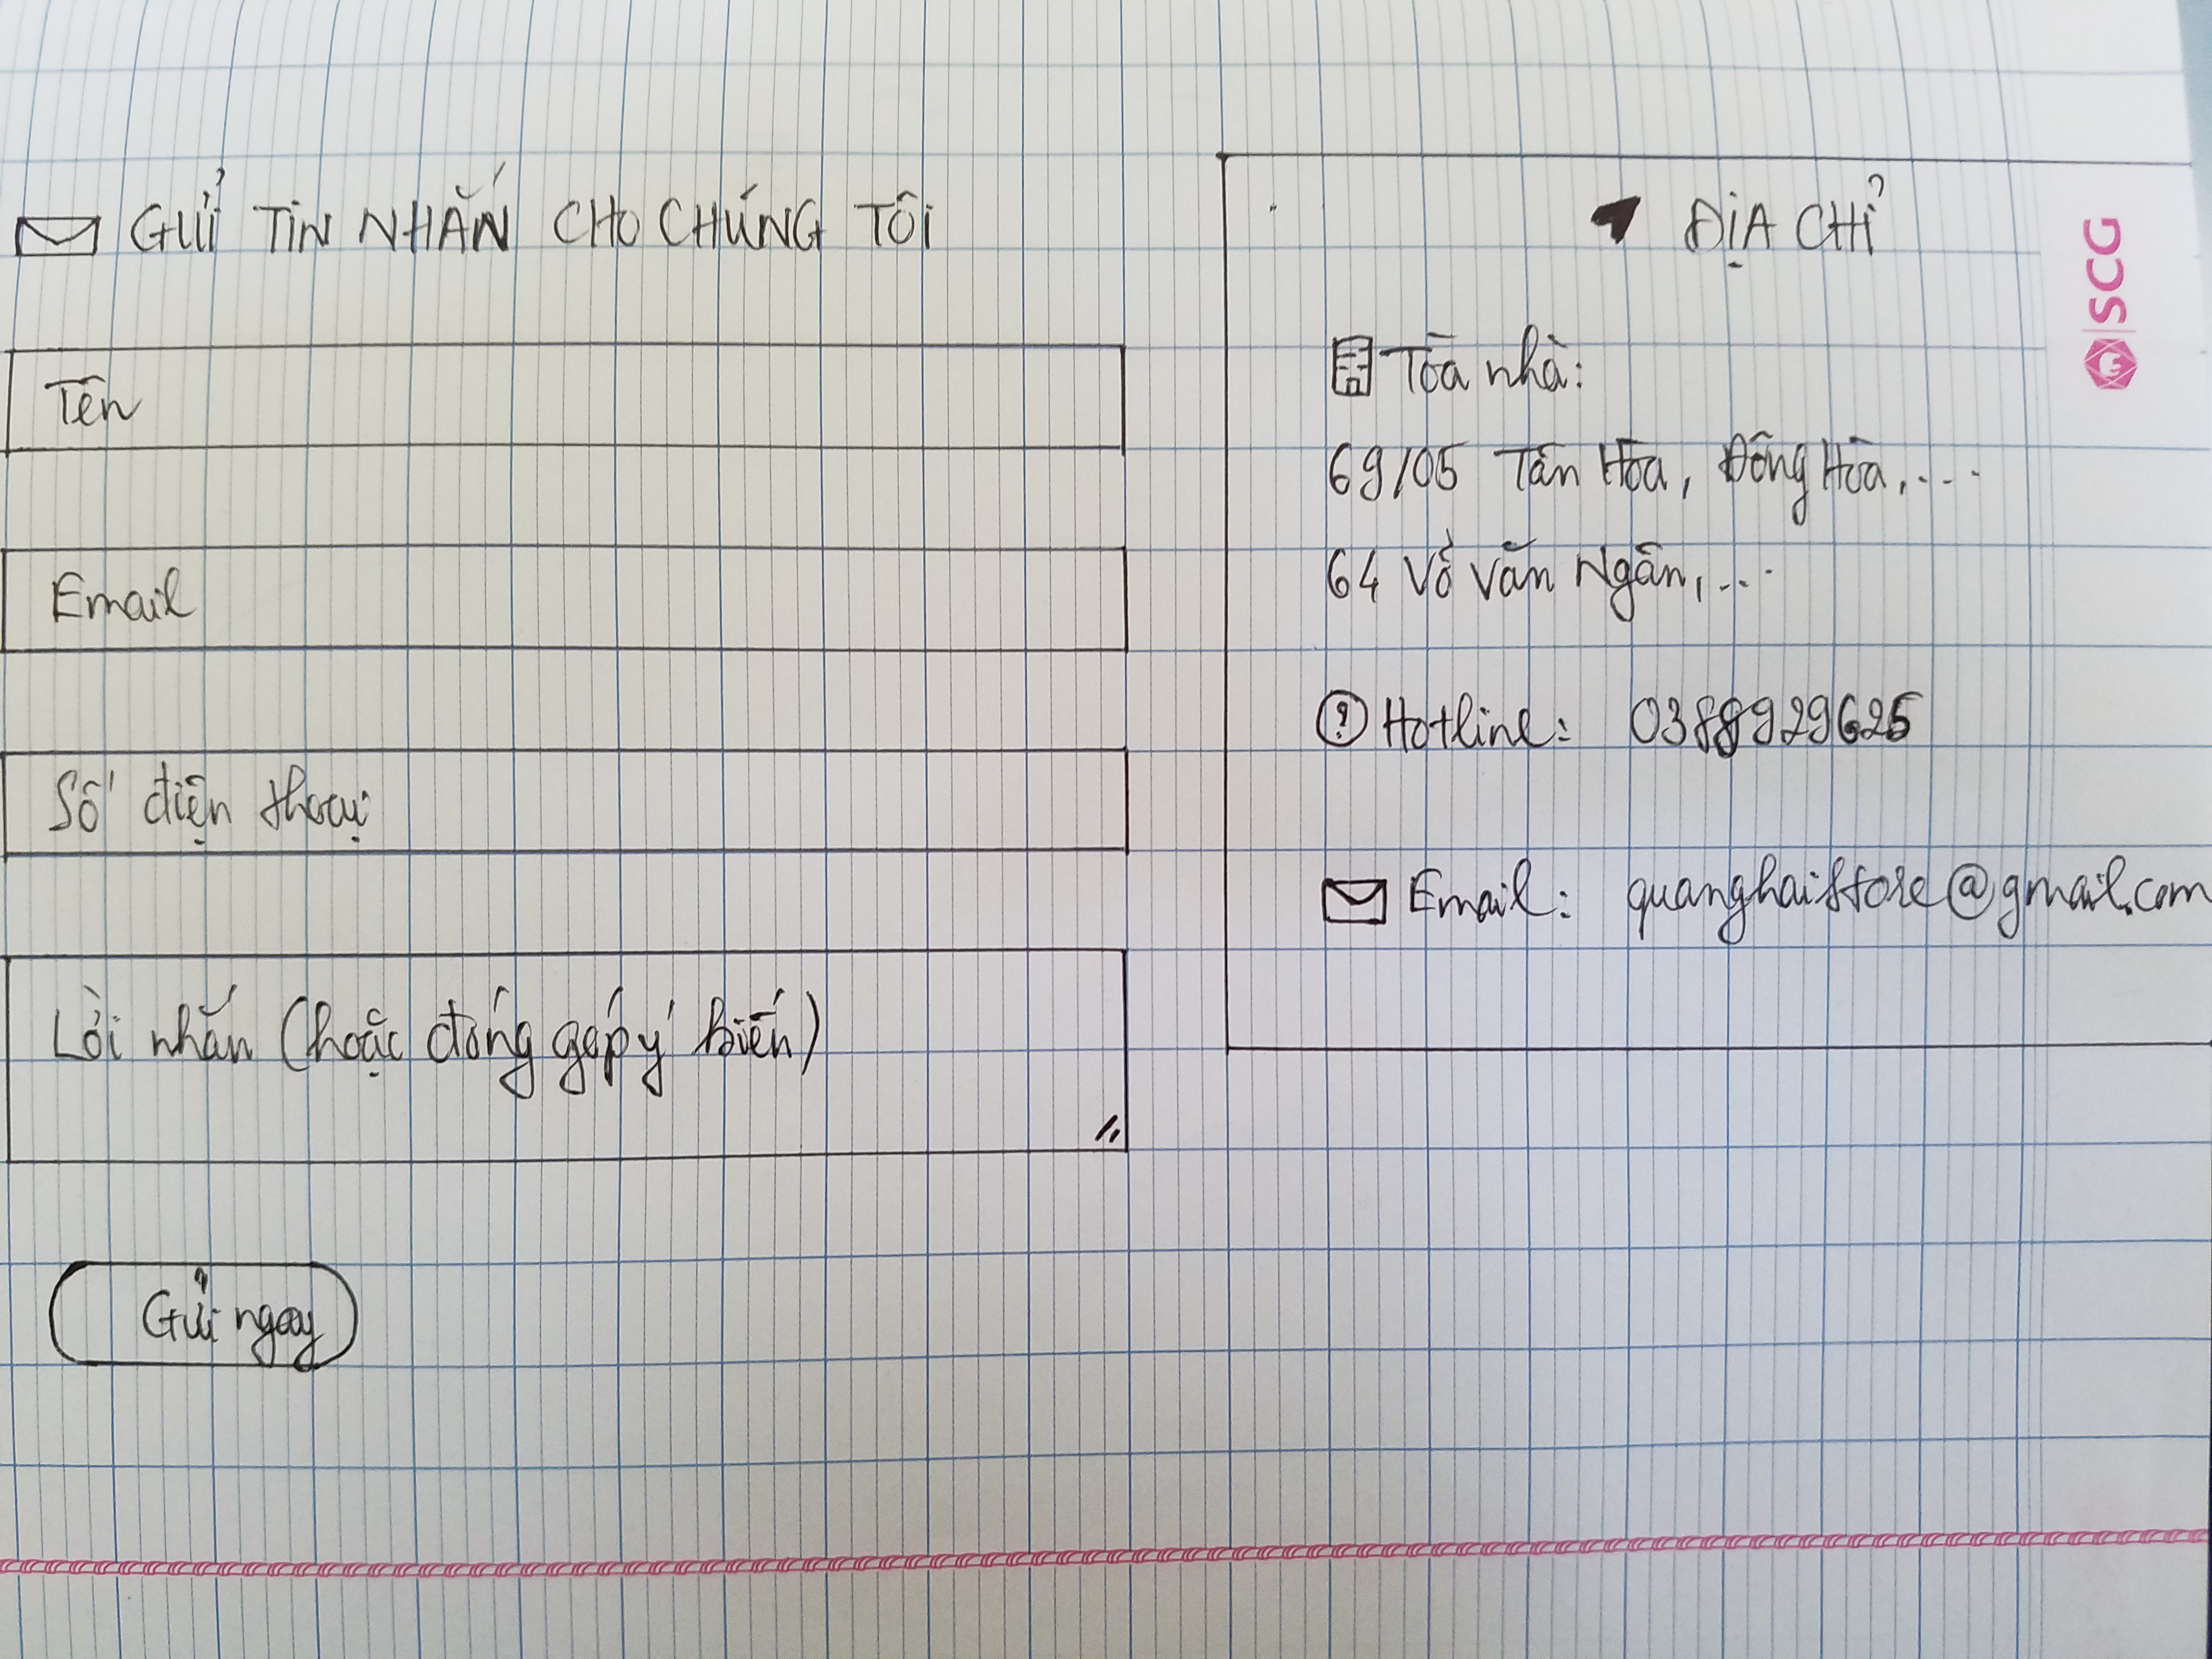 GỬI TIN NHẮN CHO CHÚNG TÔI
Tên
Email
Số điện thoại
Lời nhắn (hoặc đóng góp ý kiến)
Gửi ngay
ĐỊA CHỈ
Tòa nhà:
69/05 Tân Hòa, Đông Hòa,....
64 Võ Văn Ngân,...
Hotline: 0388929625
Email: quanghaistore@gmail.com
SCG